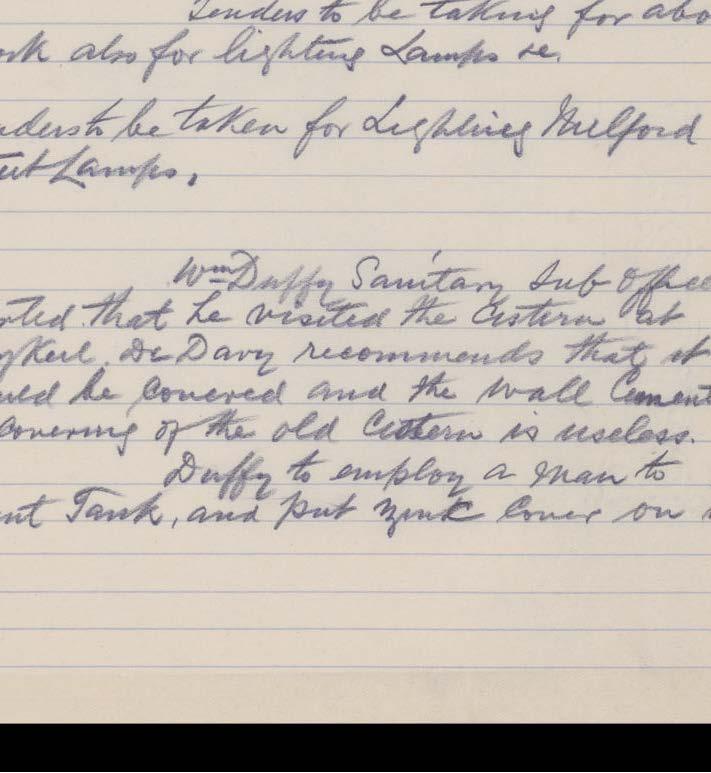 Tenders to be taking for abo
ork also for lighting Lamps &c.
nders to be taken for Lighting Milford
eet Lamps.
Wm Duffy Sanitary Sub Office
orted that he visited the Cistern at
ykeel. Dr Davy recommends that it
ould be covered and the wall Cement
Covering of the old Cistern is useless.
Duffy to employ a man to
ent Tank, and put Zink Cover on